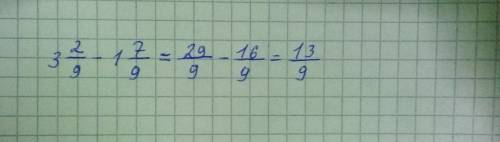 3 2/9 - 1 7/9 = 29/9 - 16/9 = 13/9